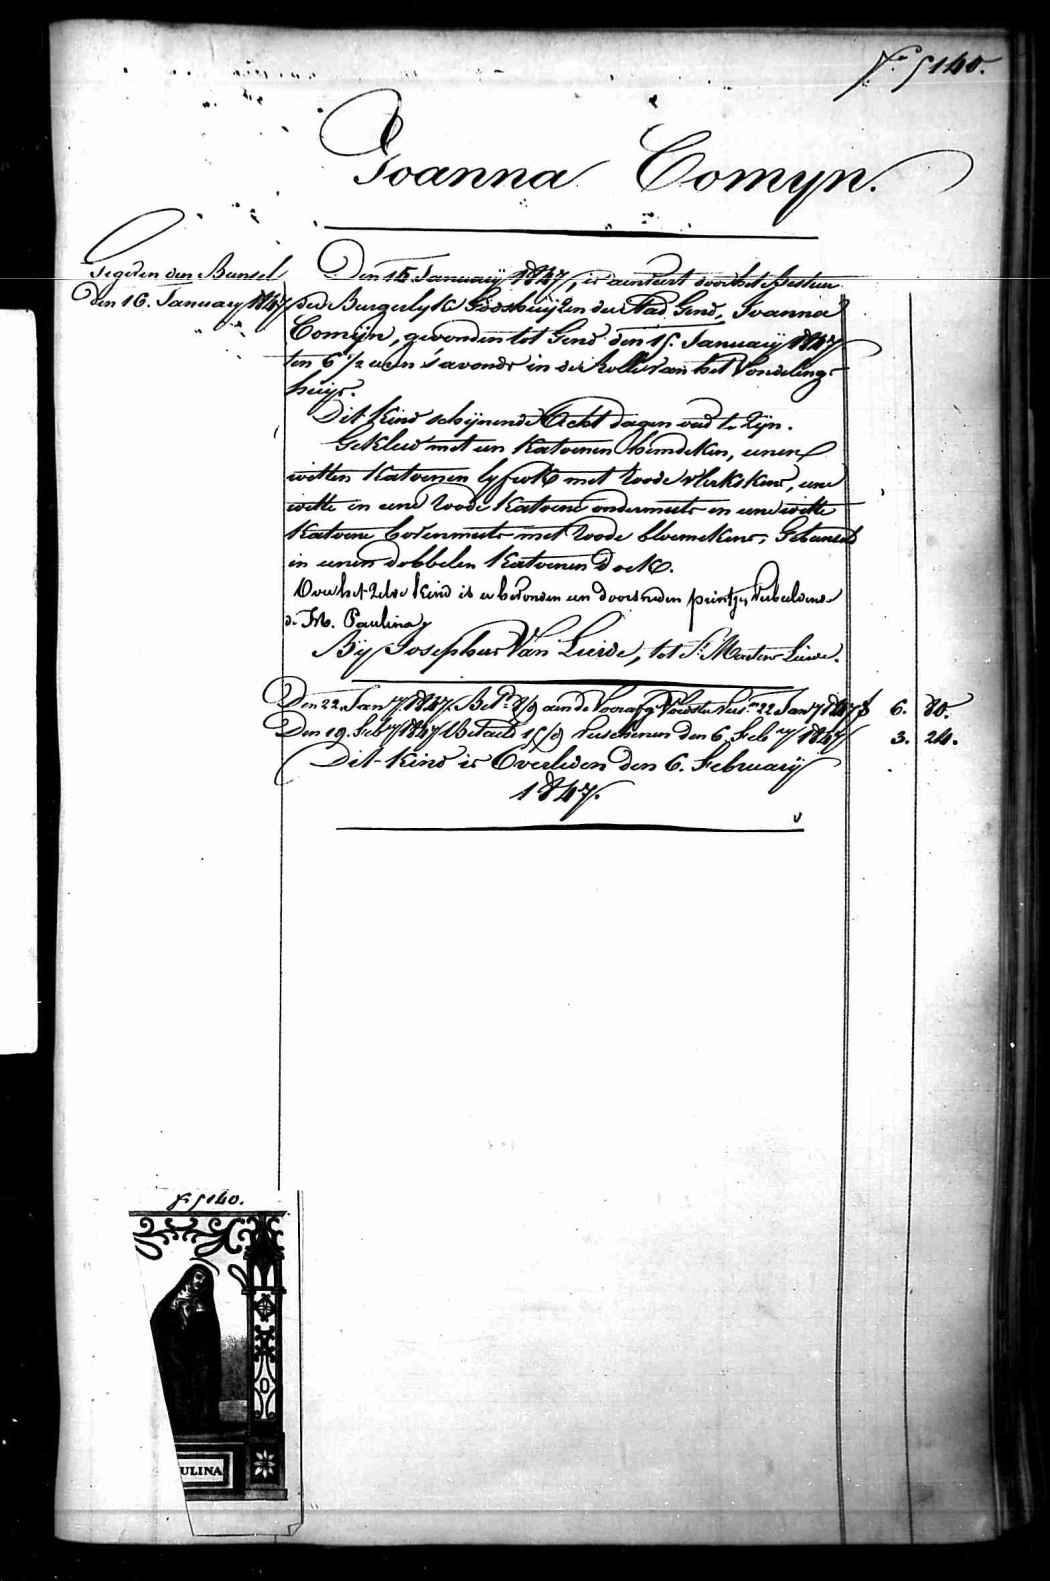 F.° 5140.
Joanna Comyn.
Tegeven den Bussel
den 16. January 1847
Den 15 January 1847, is aenveert door het Bestuer
der Burgerlyke Godshuyzen der Stad Gend, Joanna
Comyn, gevonden tot Gend den 15. January 1847
ten 6 1/2 uren s'avonds in de Rolle van het Vondeling-
huys.
Dit kind schijnende Acht dagen oud te zijn.
Gekleed met een Katoenen hemdeken, eenen
witten Katoenen lyfrok met roode sterkskens, eene
witte en eene roode Katoene ondermuts en eene witte
Katoene bovenmuts met roode bloemekens, Gebunseld
in eenen dobbelen Katoenen doek.
Over het zelve kind is er bevonden een doorsneden printje, Verbeeldende
de H. Paulina,
Bij Josephus Van Lierde, tot St. Martens Lierde.
Den 22. Jany. 1847. Bet. 9 aen de Voorafg. Voedster Vers. 22 Jany 1847 f 6. 80.
Den 19. Feby 1847 Betaeld 15/9 Verschenen den 6. Feby 1847 3. 24.
Dit kind is Overleden den 6. February
1847.
F° 5140.
ULINA